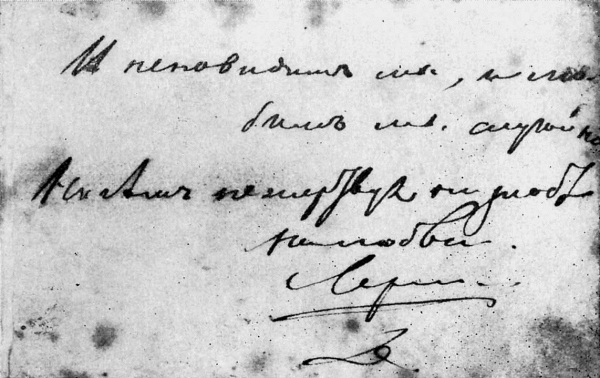 И ненавидимъ мы, и лю-
бимъ мы. случайно
ничѣмъ не жертвуя, ни злобѣ
ни любви.
Лерм